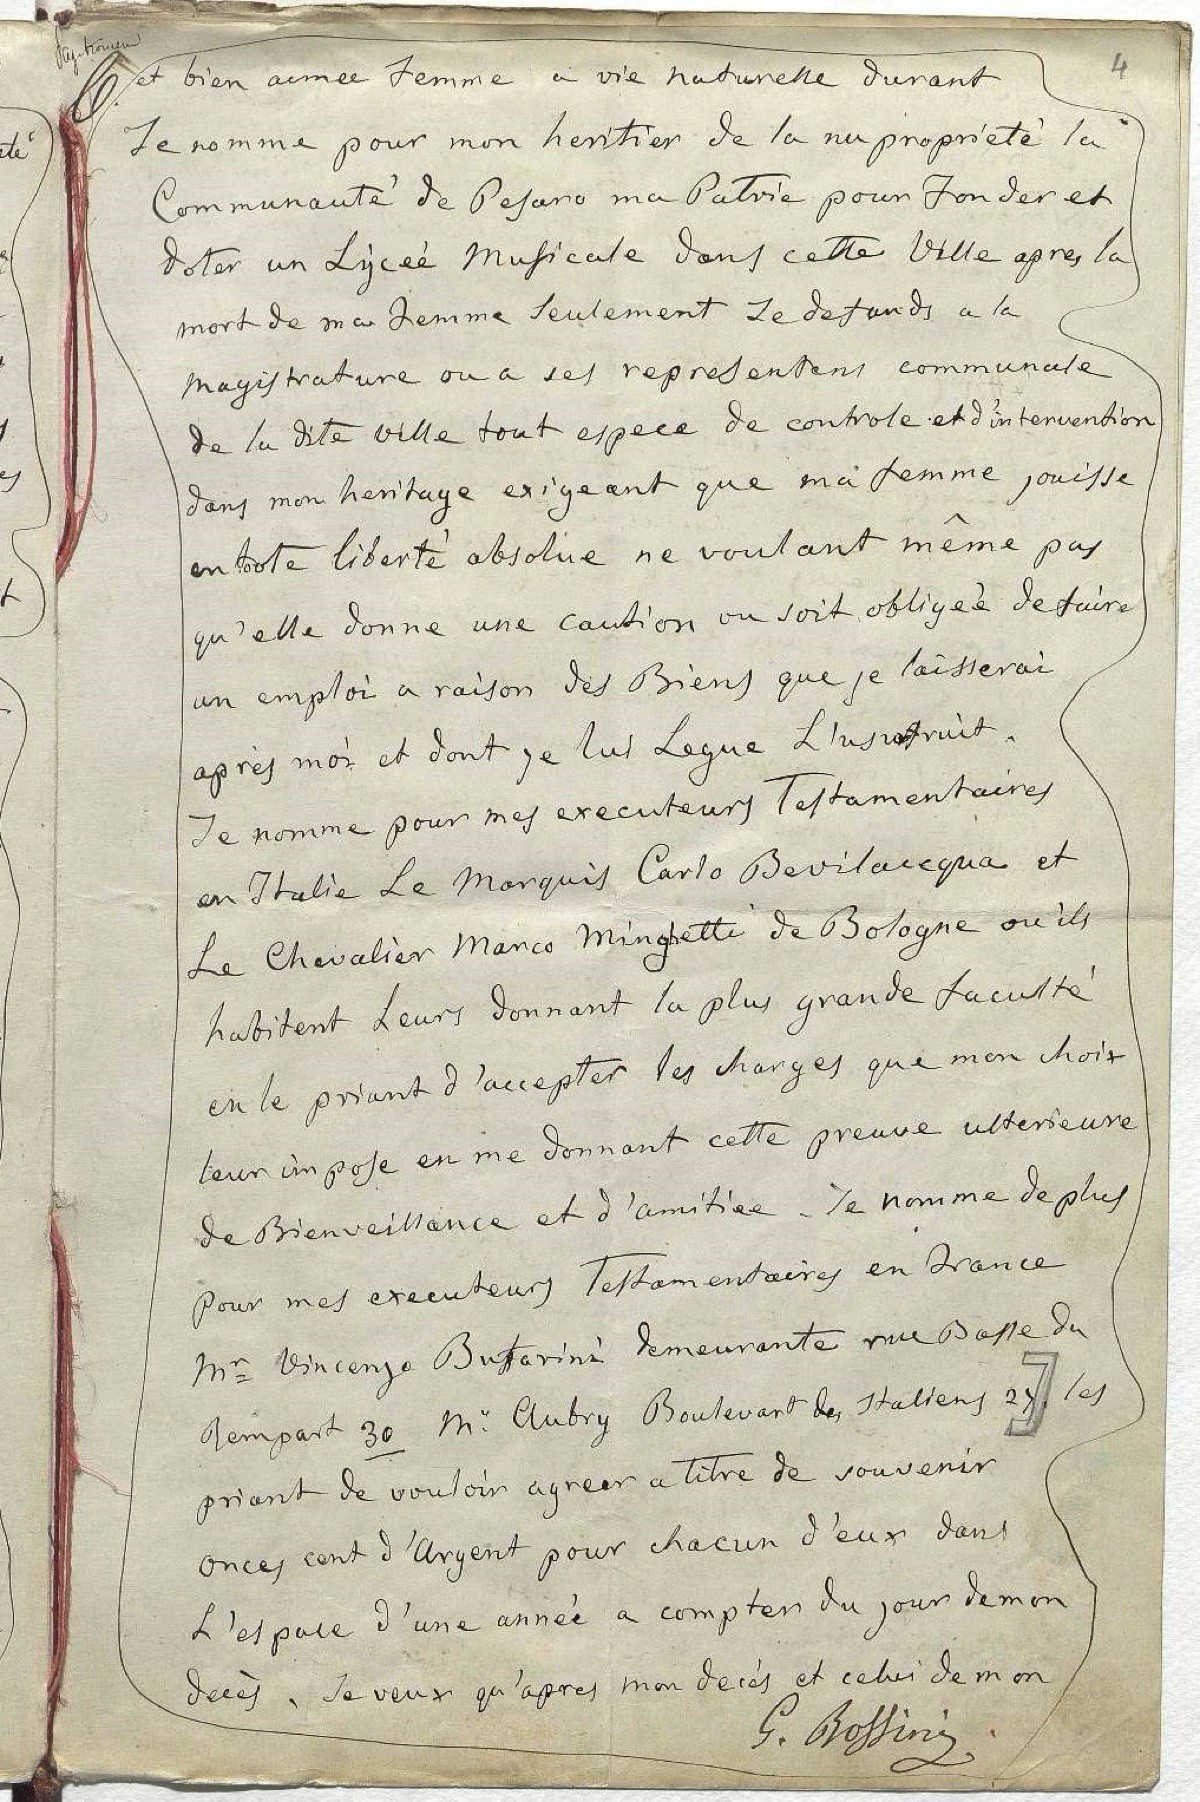 4
et bien aimée femme a vie naturelle durant
Je nomme pour mon heritier de la nu propriété la
Communauté de Pesaro ma Patrie pour Fonder et
doter un Lÿceé Musicale dans cette Ville apres la
mort de ma femme Seulement Je defands a la
magistrature ou a ses representens communale
de la dite Ville tout espece de controle et d'intervention
dans mon heritage exigeant que ma femme jouisse
en tote liberté absolue ne voulant même pas
qu'elle donne une caution ou soit obligeé de faire
un emploi a raison des Biens que je laisserai
après moi et dont je lui Legue L'usufruit.
Je nomme pour mes executeurs Testamentaires
en Italie Le Marquis Carlo Bevilacequa et
Le Chevalier Marco Minghetti de Bologne ou ils
habitent Leurs donnant la plus grande faculté
en le priant d'accepter les charges que mon choix
leur impose en me donnant cette preuve ulterieure
de Bienveillance et d'amitiee. Je nomme de plus
pour mes executeurs Testamentaires en France
Mr Vincenzo Buffarini demeurante rue Basse du
Rempart 30 Mr. Aubry Boulevart des Italiens 27. les
priant de vouloir agreer a titre de souvenir
onces cent d'Argent pour chacun d'eux dans
L'espace d'une anneé a compter du jour de mon
decès. Je veux qu'apres mon decés et celui de mon
G. Rossini